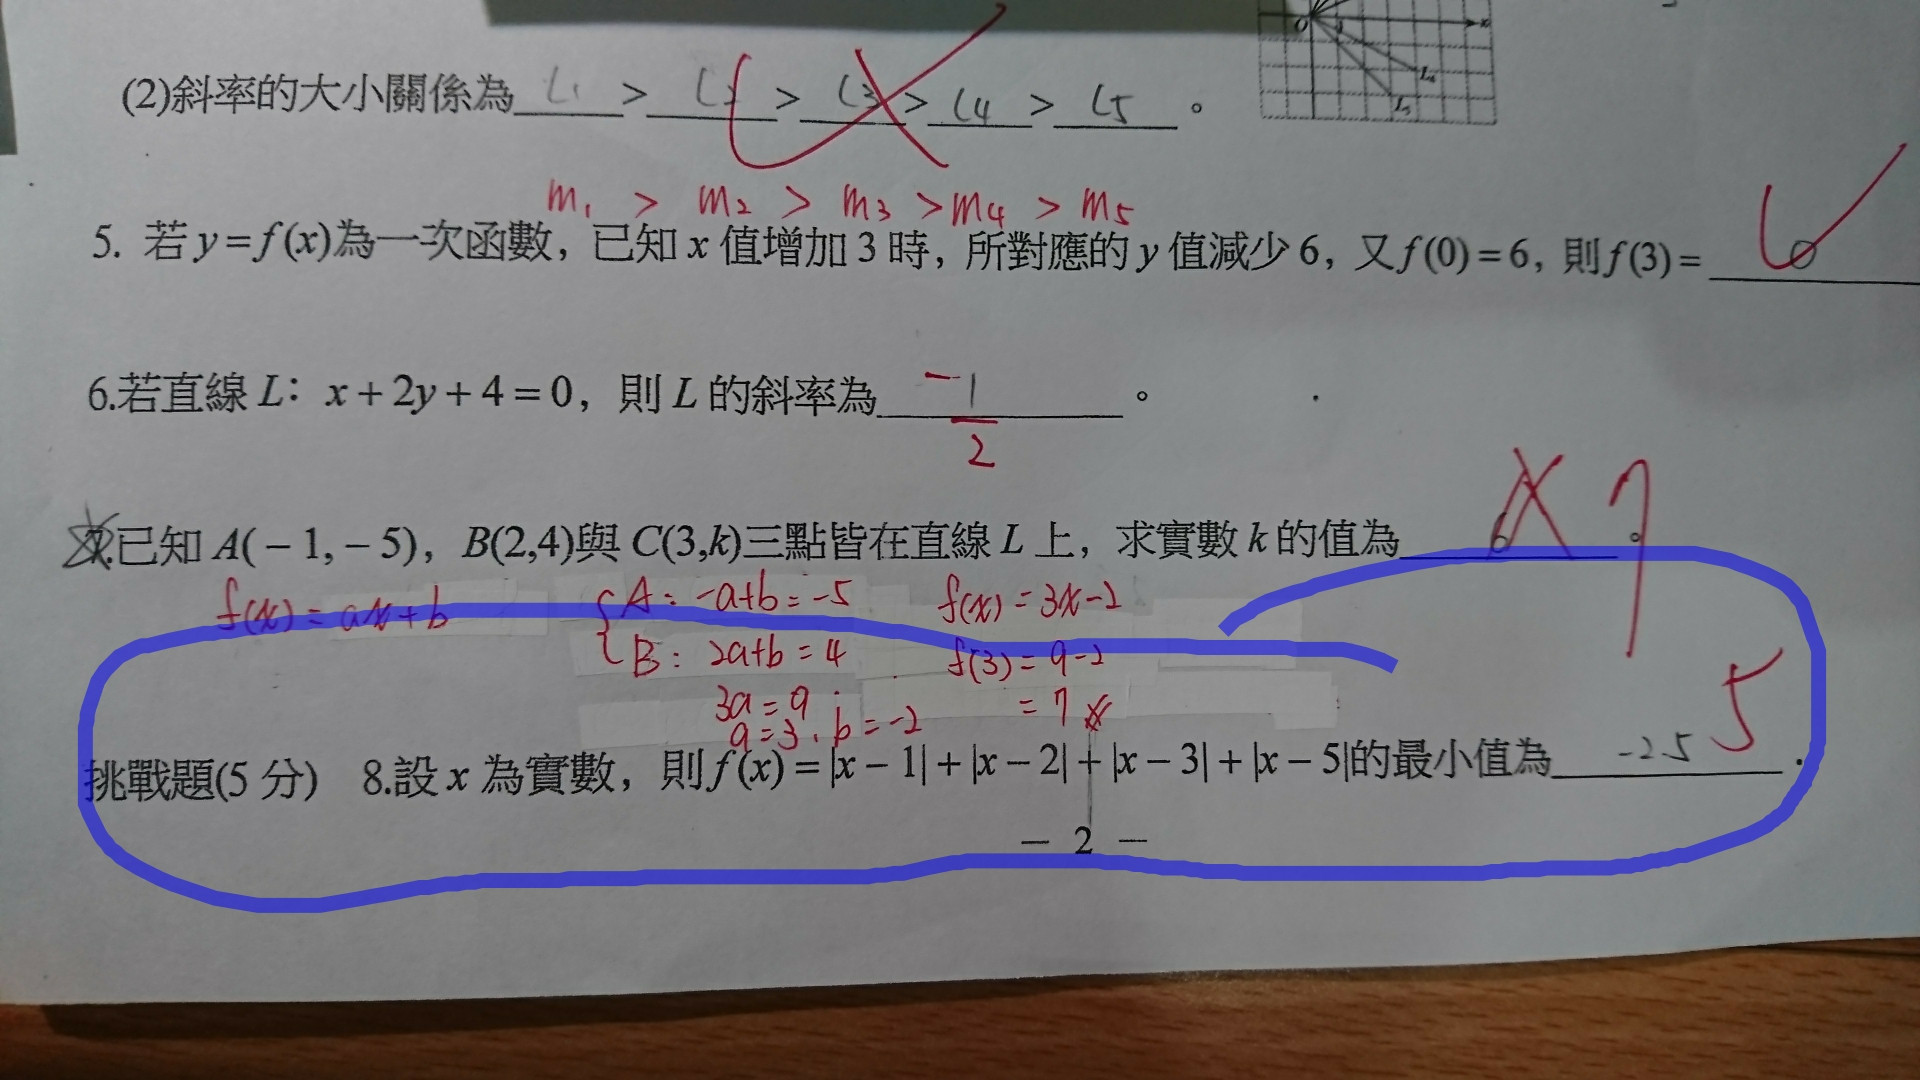 O x
L₄
L₅
(2)斜率的大小關係為 L1 > L2 > L3 > L4 > L5 。
m1 > m2 > m3 > m4 > m5
5. 若y=f(x)為一次函數，已知x值增加3時，所對應的y值減少6，又f(0)=6，則f(3)= 0
6.若直線L：x+2y+4=0，則L的斜率為 -1 。
2
7.已知A(－1,－5)，B(2,4)與C(3,k)三點皆在直線L上，求實數k的值為 6 。 7
f(x)=ax+b A：-a+b=-5 f(x)=3x-2
B：2a+b=4 f(3)=9-2
3a=9 =7
a=3，b=-2
挑戰題(5分) 8.設x為實數，則f(x)=|x－1|+|x－2|+|x－3|+|x－5|的最小值為 -25 5 .
— 2 —